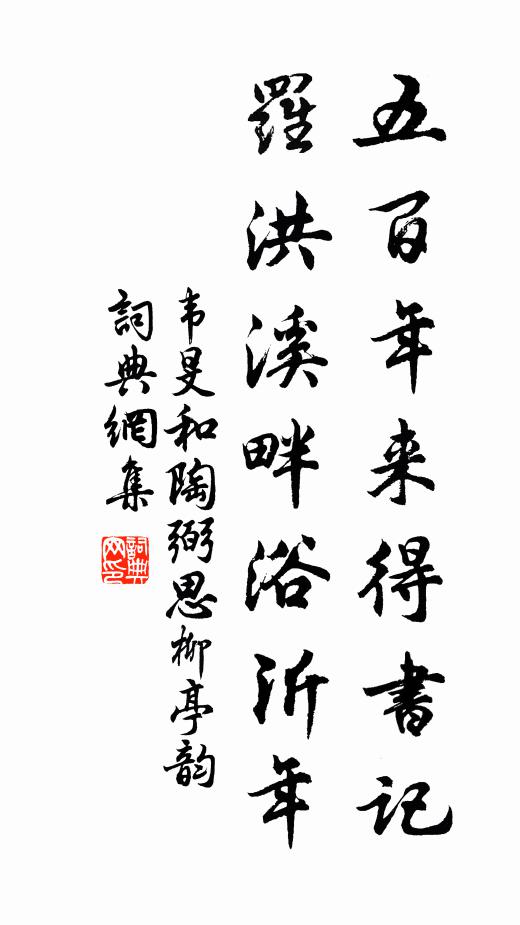 五百年来得書記
羅洪溪畔浴沂年
韦旻和陶弼思柳亭韵
詞典網集
詞典网印